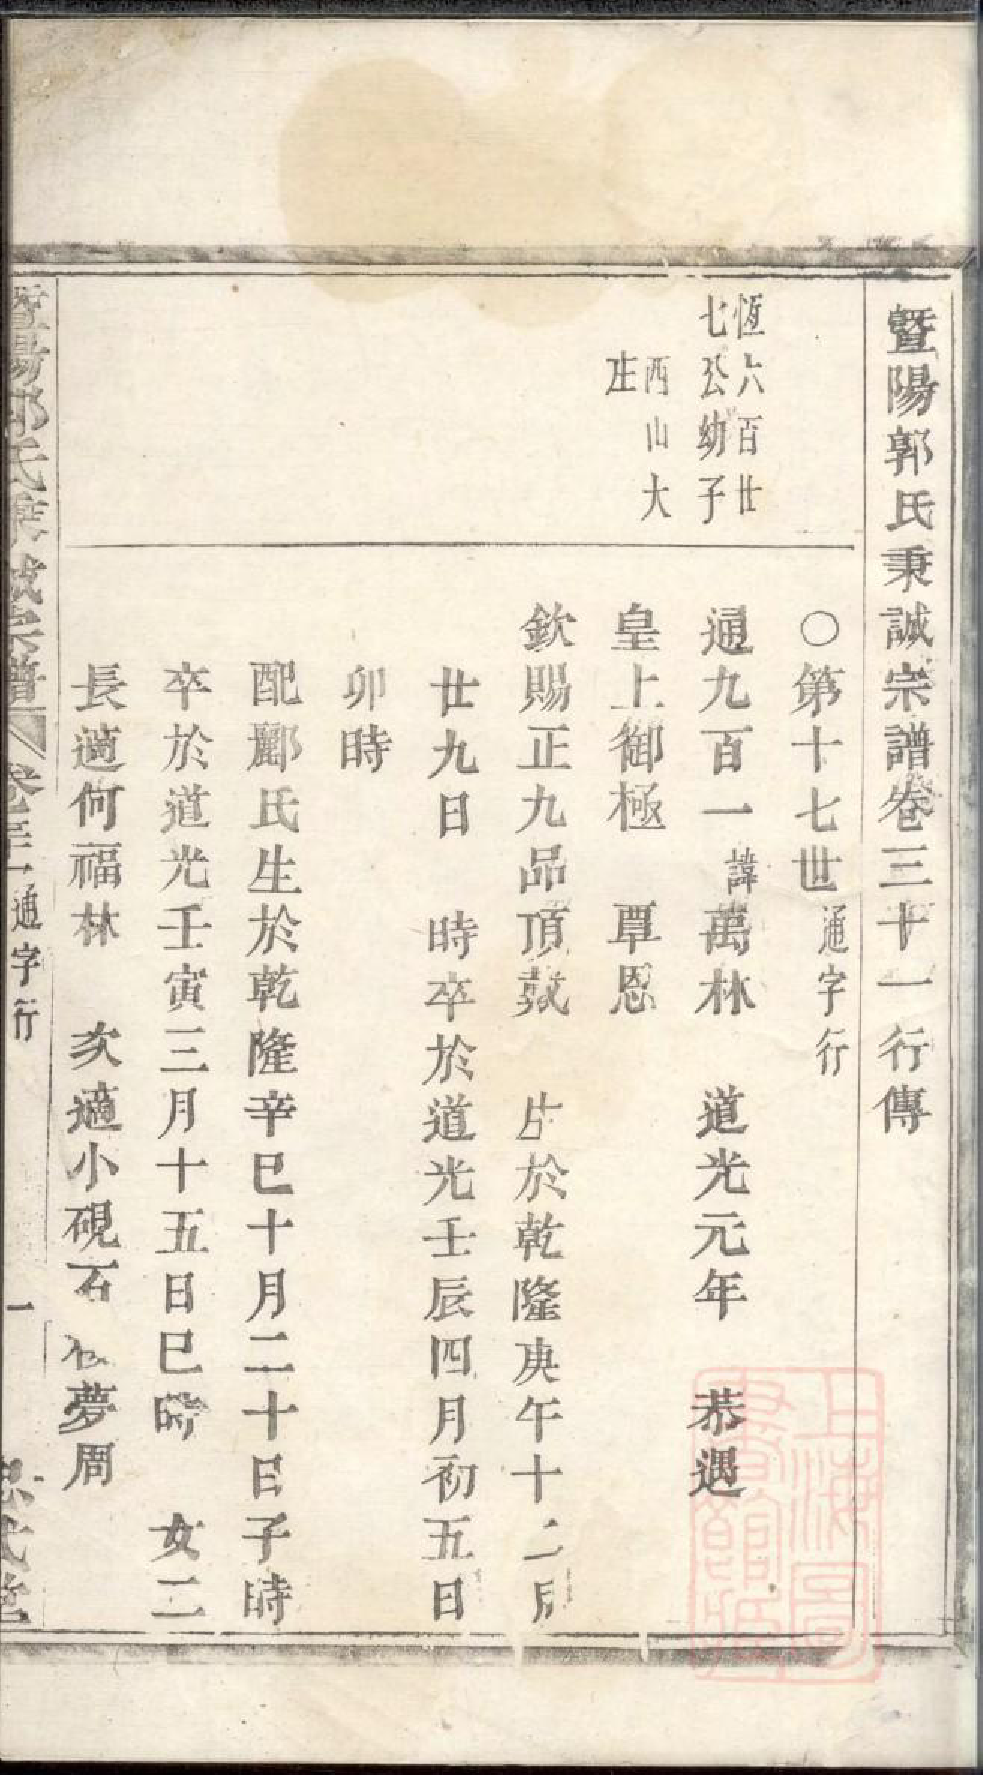 暨陽郭氏秉誠宗譜卷三十一行傳
○第十七世通字行
恆六百廿
七公幼子
西山大
庄
通九百一諱萬林　道光元年　恭遇
皇上御極　覃恩
欽賜正九品頂戴　生於乾隆庚午十二月
廿九日　時卒於道光壬辰四月初五日
卯時
配酈氏生於乾隆辛巳十月二十日子時
卒於道光壬寅三月十五日巳時　女二
長適何福林　次適小硯石　夢周
暨陽郭氏秉誠宗譜　卷三十一　通字行　一
上海圖書館藏